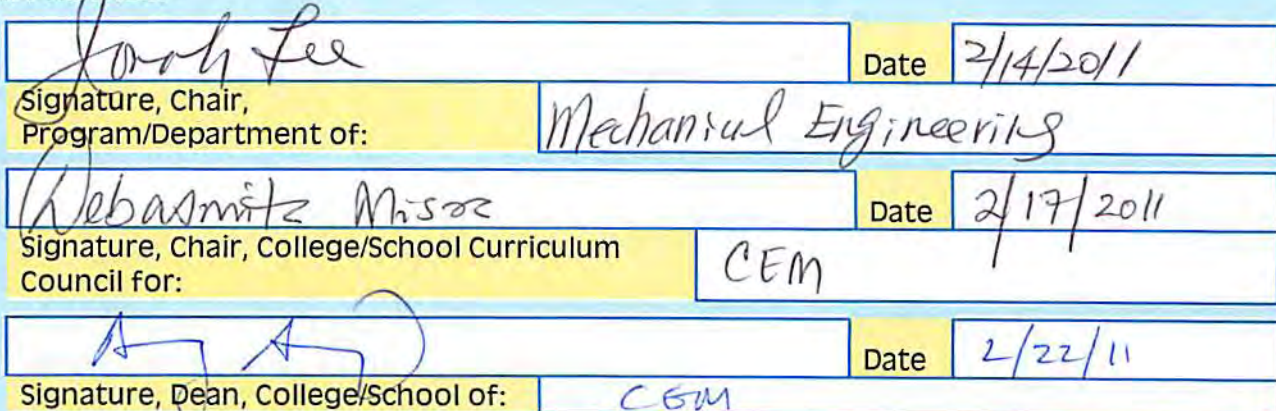 Jonah Lee Date 2/14/2011
Signature, Chair,
Program/Department of: Mechanical Engineering
Debasmita Misra Date 2/17/2011
Signature, Chair, College/School Curriculum
Council for: CEM
Date 2/22/11
Signature, Dean, College/School of: CEM